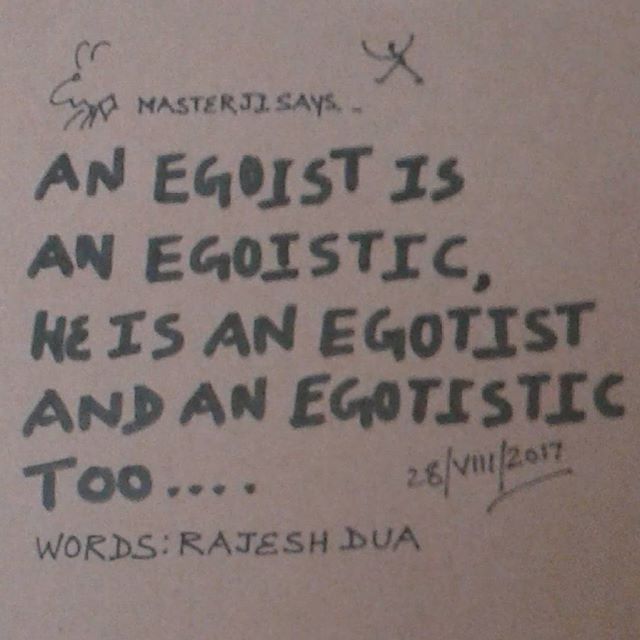 MASTERJI SAYS..
AN EGOIST IS
AN EGOISTIC,
HE IS AN EGOTIST
AND AN EGOTISTIC
TOO....
28/VIII/2017
WORDS: RAJESH DUA